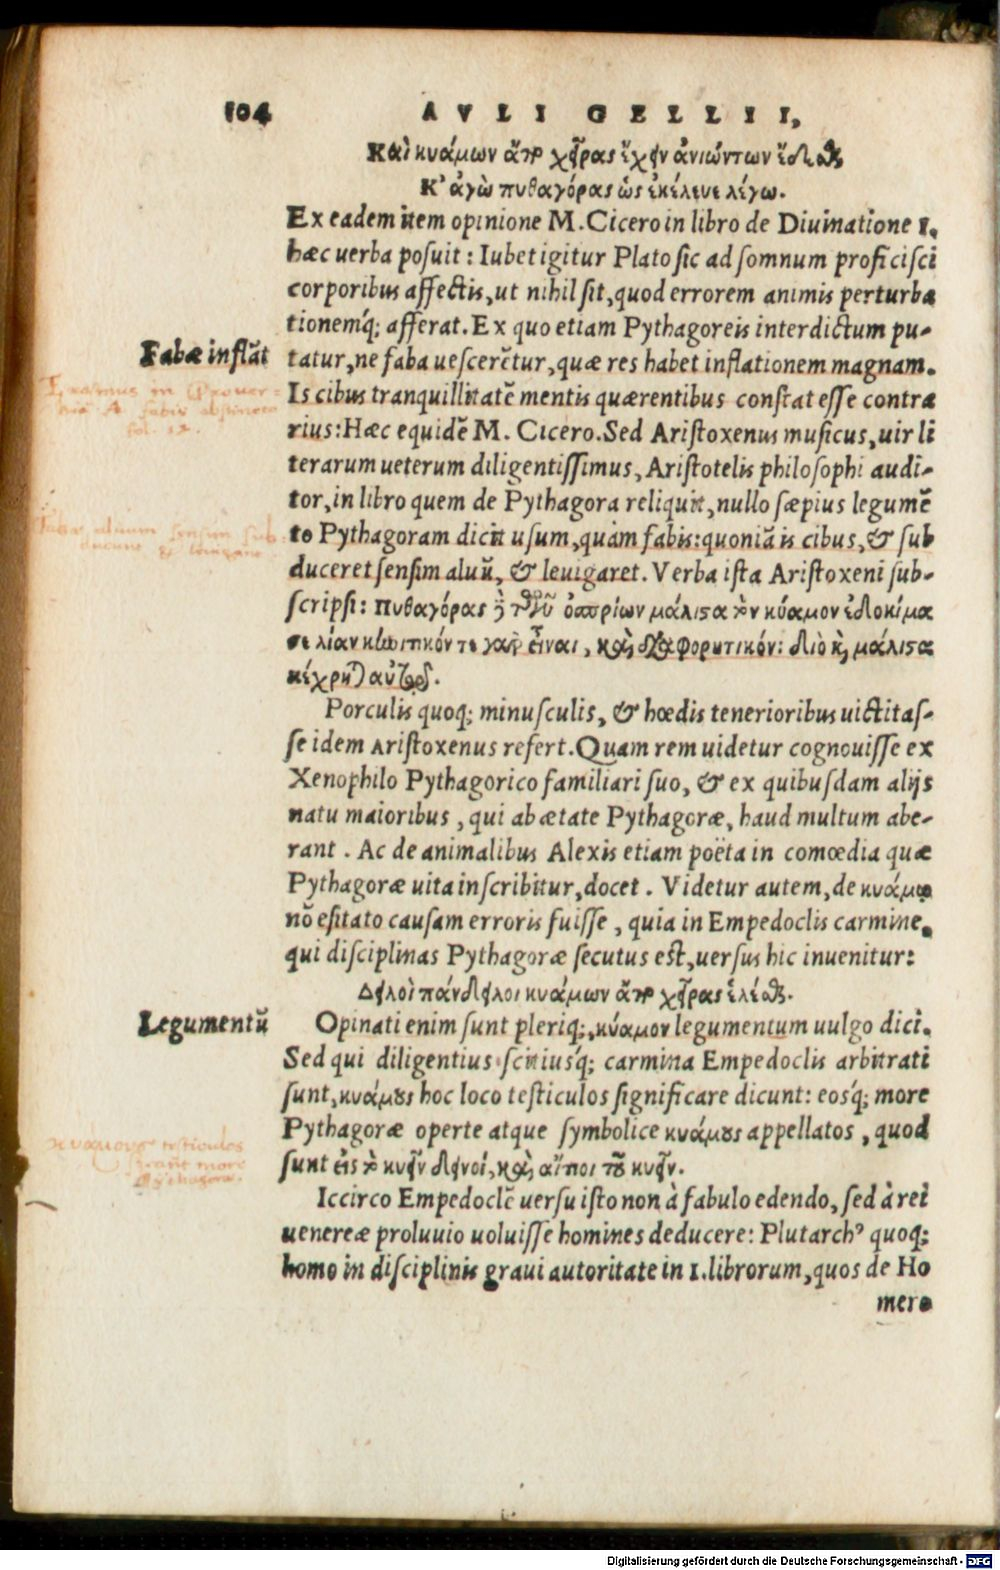 104 AVLI GELLII,
Καὶ κυάμων ἄπο χεῖρας ἔχειν ἀνιῶντων ἔδεσθε
Κ' ἀγὼ πυθαγόρας ὡς ἐκέλευε λέγω.
Ex eadem item opinione M. Cicero in libro de Diuinatione I.
hæc uerba posuit: Iubet igitur Plato sic ad somnum proficisci
corporibus affectis, ut nihil sit, quod errorem animis perturba
tionemq́; afferat. Ex quo etiam Pythagoreis interdictum pu-
Fabæ inflāt
tatur, ne faba uescerētur, quæ res habet inflationem magnam.
Is cibus tranquillitatē mentis quærentibus constat esse contra
Erasmus in Prouer-
bio A fabis abstineto
fol. 12.
rius: Hæc equidē M. Cicero. Sed Aristoxenus musicus, uir li
terarum ueterum diligentissimus, Aristotelis philosophi audi-
tor, in libro quem de Pythagora reliquit, nullo sæpius legumē
to Pythagoram dicit usum, quàm fabis: quoniā is cibus, & sub
duceret sensim aluū, & leuigaret. Verba ista Aristoxeni sub-
scripsi: Πυθαγόρας δὲ τῶν ὀσπρίων μάλιστα τὸν κύαμον ἐδοκίμα
σε λίαν κινητικόν τε γὰρ εἶναι, καὶ διαφορητικόν: διὸ καὶ μάλιστα
κέχρηται αὐτῷ.
Porculis quoq; minusculis, & hœdis tenerioribus uictitas-
se idem Aristoxenus refert. Quam rem uidetur cognouisse ex
Xenophilo Pythagorico familiari suo, & ex quibusdam alijs
natu maioribus, qui ab ætate Pythagoræ, haud multum abe-
rant. Ac de animalibus Alexis etiam poëta in comœdia quæ
Pythagoræ uita inscribitur, docet. Videtur autem, de κυάμῳ
nō esitato causam erroris fuisse, quia in Empedoclis carmine,
qui disciplinas Pythagoræ secutus est, uersus hic inuenitur:
Δειλοὶ πάνδειλοι κυάμων ἄπο χεῖρας ἑλέσθε.
Legumentū
Opinati enim sunt pleriq;, κύαμον legumentum uulgo dici.
Sed qui diligentius scitiusq́; carmina Empedoclis arbitrati
sunt, κυάμους hoc loco testiculos significare dicunt: eosq́; more
κυάμους testiculos
more
Pythagoræ.
Pythagoræ operte atque symbolice κυάμους appellatos, quod
sunt εἰς τὸ κυεῖν δεινοί, καὶ αἴτιοι τοῦ κυεῖν.
Iccirco Empedoclē uersu isto non à fabulo edendo, sed à rei
uenereæ proluuio uoluisse homines deducere: Plutarchꝰ quoq;
homo in disciplinis graui autoritate in I. librorum, quos de Ho
mero
Digitalisierung gefördert durch die Deutsche Forschungsgemeinschaft - DFG